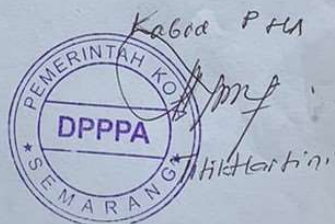 Kabid PHA
PEMERINTAH KOTA
DPPPA
SEMARANG
Titik Hartini